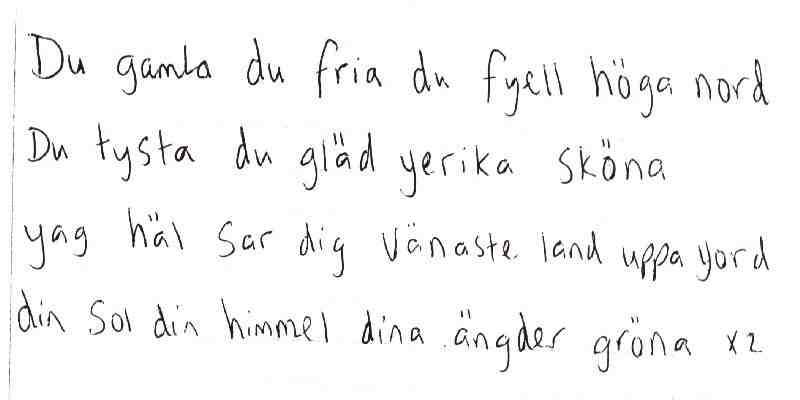 Du gamla du fria du fyell höga nord
Du tysta du gläd yerika sköna
yag häl sar dig vänaste land uppa yord
din sol din himmel dina ängder gröna x2